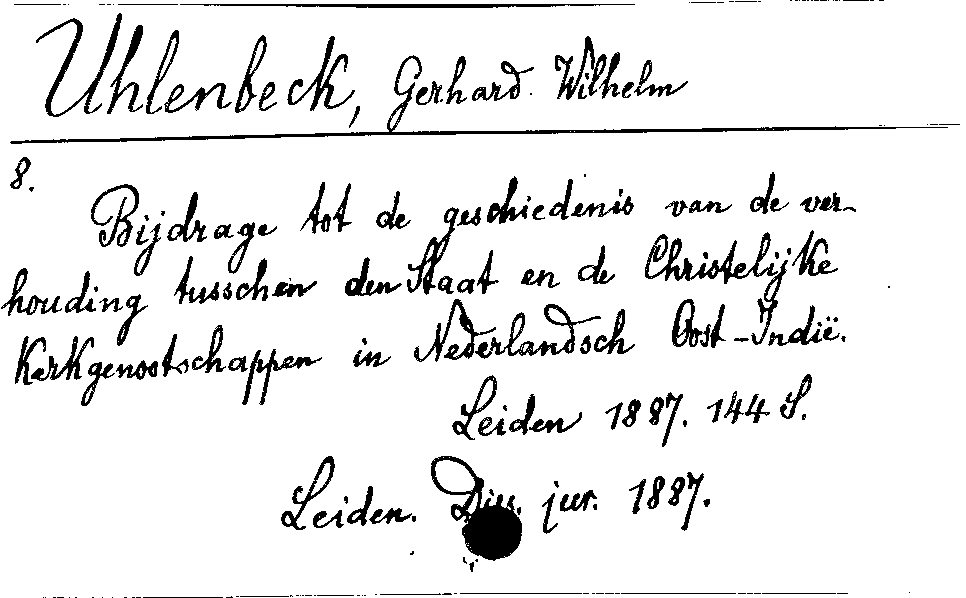 Uhlenbeck, Gerhard Wilhelm
8.
Bijdrage tot de geschiedenis van de ver-
houding tusschen den Staat en de Christelijke
Kerkgenootschappen in Nederlandsch Oost-Indië.
Leiden 1887. 144 S.
Leiden. Diss. jur. 1887.